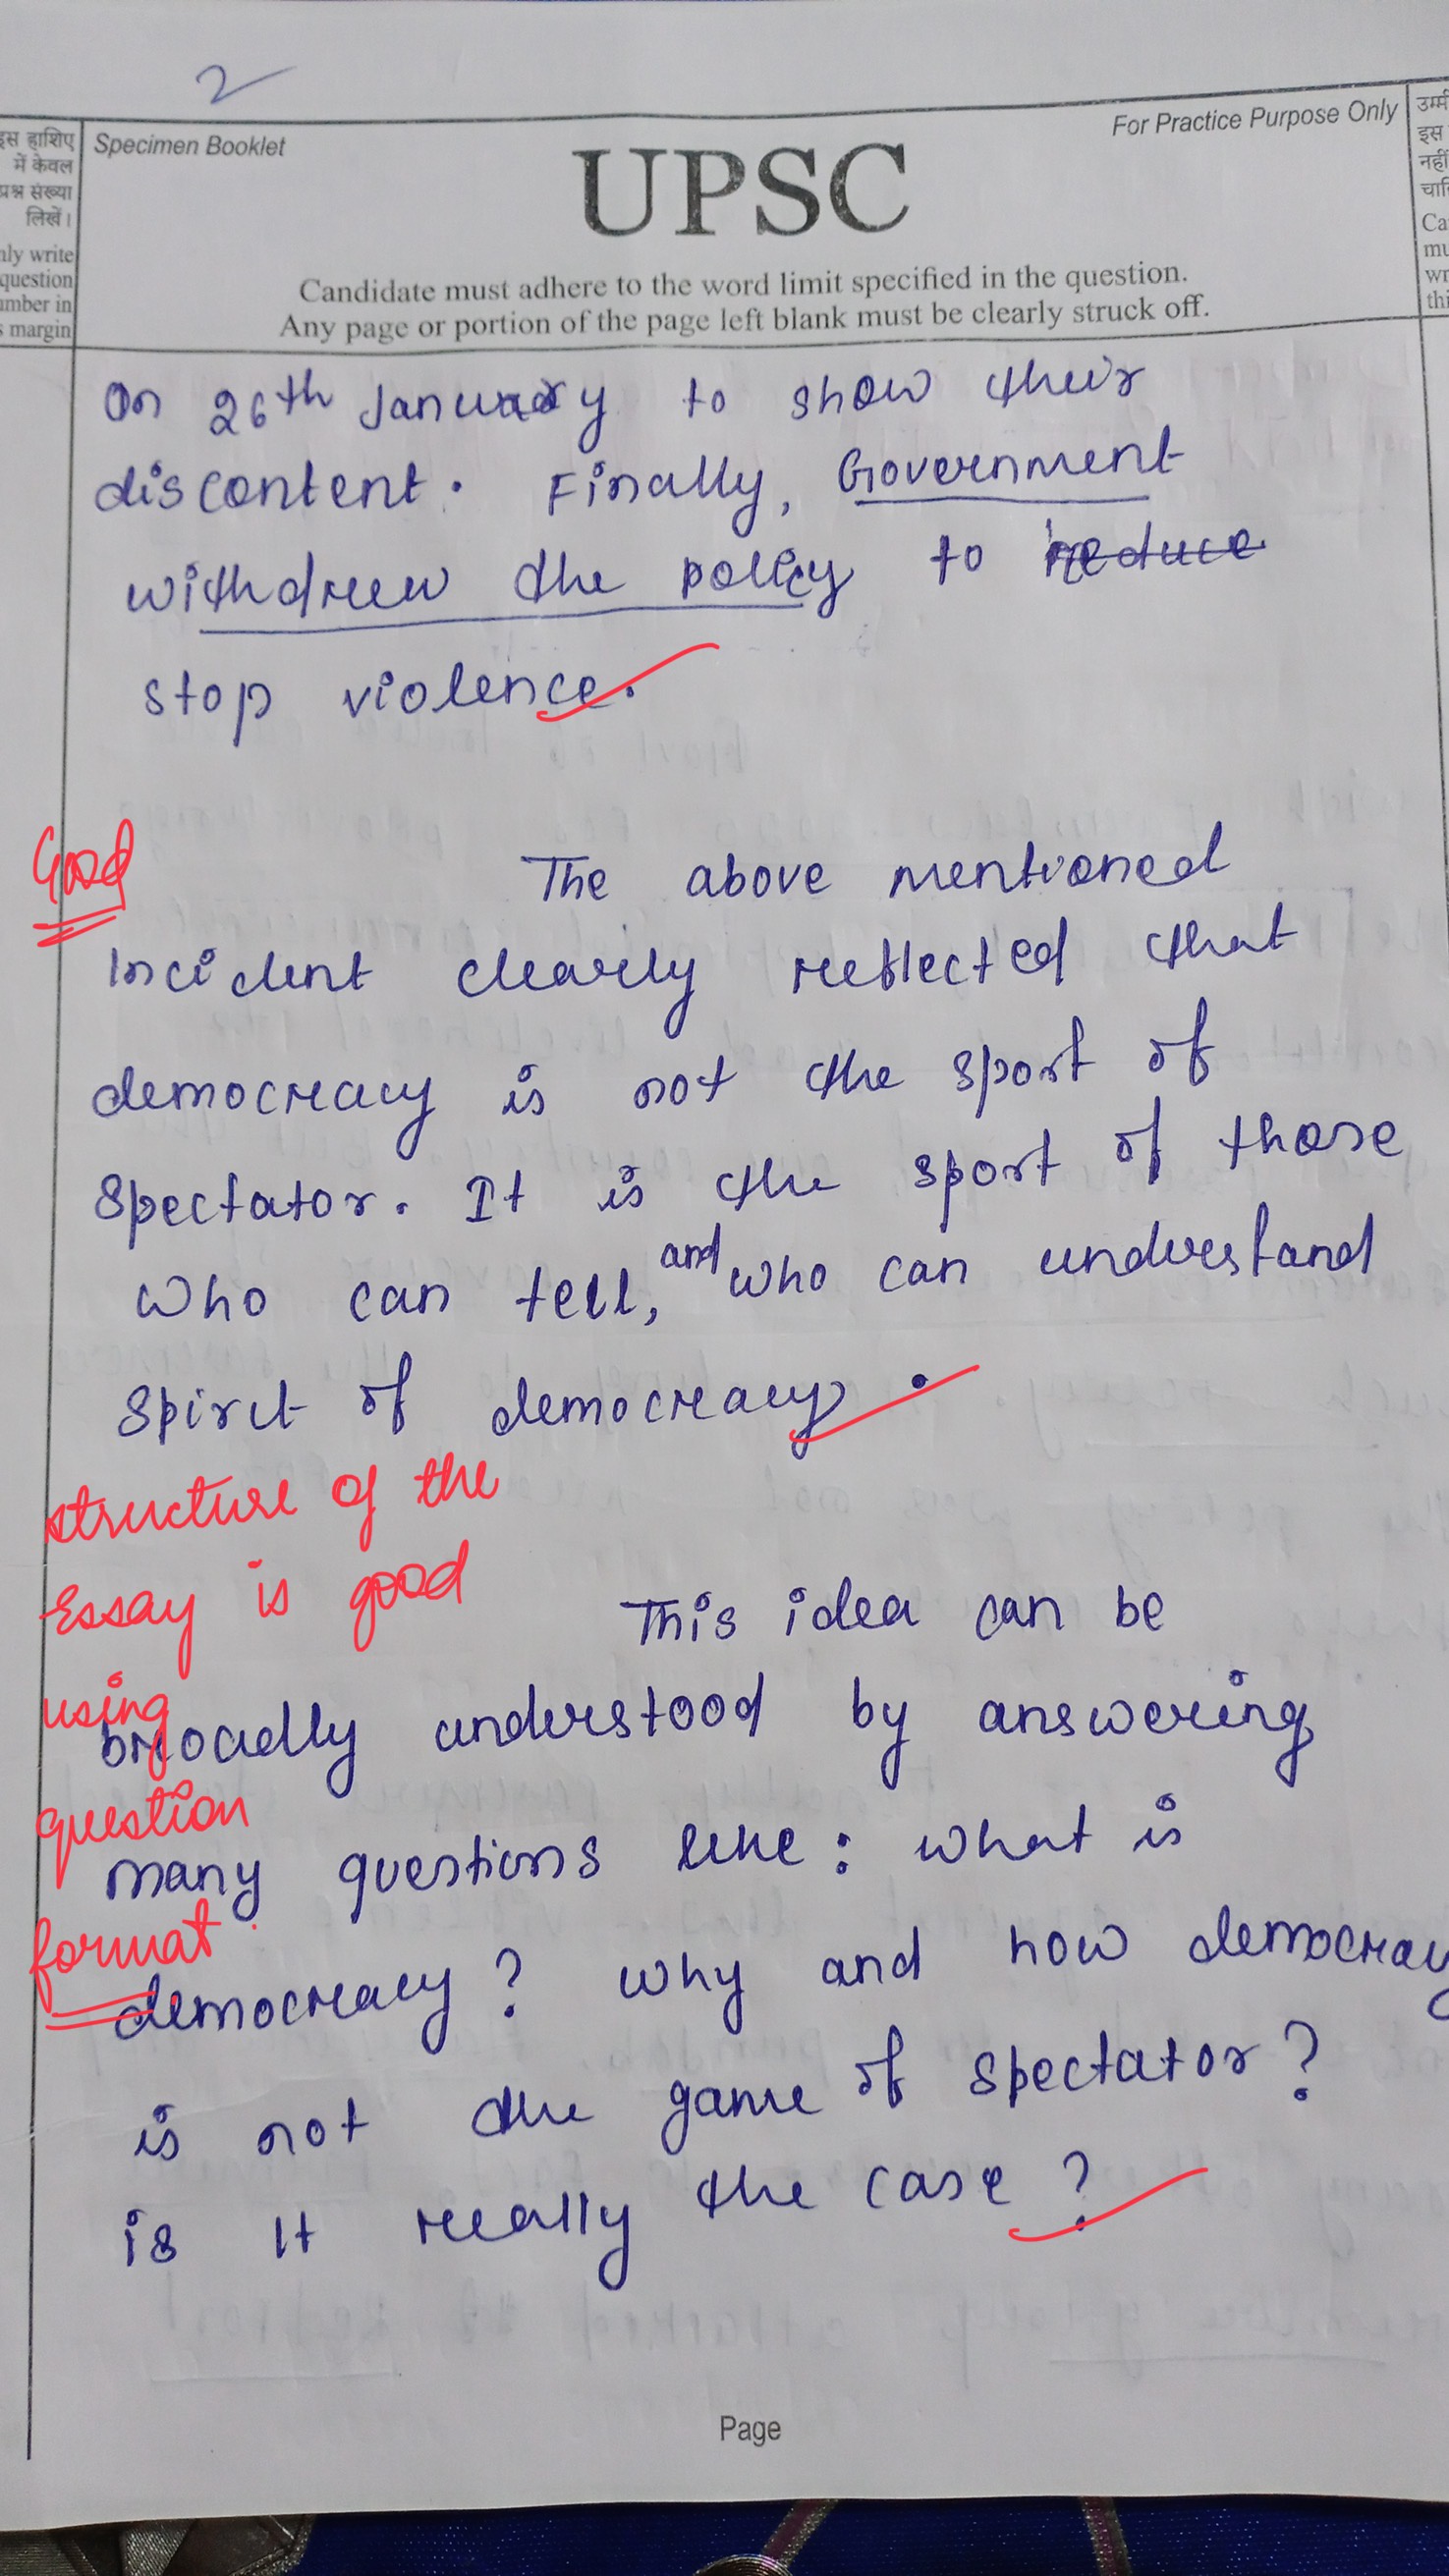 2
इस हाशिए
में केवल
प्रश्न संख्या
लिखें।
nly write
question
umber in
s margin
Specimen Booklet
For Practice Purpose Only
UPSC
Candidate must adhere to the word limit specified in the question.
Any page or portion of the page left blank must be clearly struck off.
उम्मी
इस
नहीं
चाहि
Ca
mu
wr
thi
On 26th January to show their
discontent. Finally, Government
withdrew the policy to reduce
stop violence.
Good
The above mentioned
Incident clearly reflected that
democracy is not the sport of
Spectator. It is the sport of those
who can tell, and who can understand
Spirit of democracy.
structure of the
Essay is good
using
question
format
This idea can be
broadly understood by answering
many questions like: what is
democracy? why and how democracy
is not the game of spectator?
is It really the case?
Page